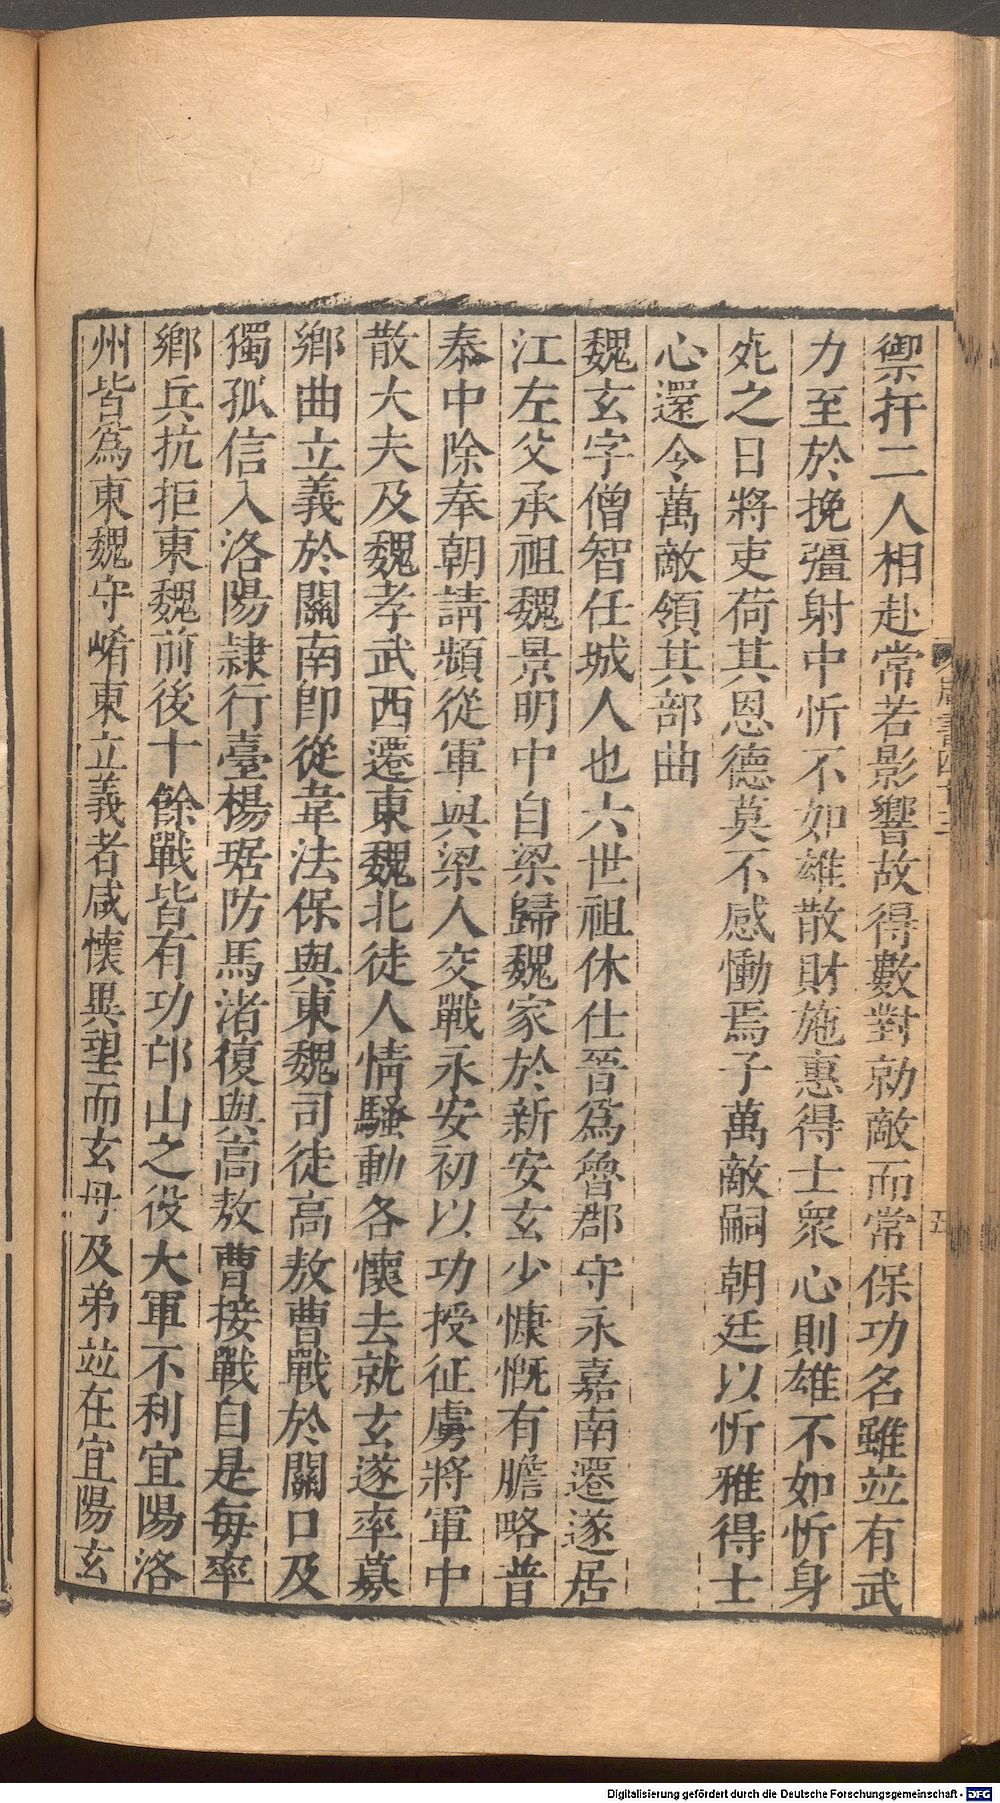 禦扞二人相赴常若影響故得數對勍敵而常保功名雖竝有武
力至於挽彊射中忻不如雄散財施惠得士衆心則雄不如忻身
死之日將吏荷其恩德莫不感慟焉子萬敵嗣朝廷以忻雅得士
心還令萬敵領其部曲
魏玄字僧智任城人也六世祖休仕晉爲魯郡守永嘉南遷遂居
江左父承祖魏景明中自梁歸魏家於新安玄少慷慨有膽略普
泰中除奉朝請頻從軍與梁人交戰永安初以功授征虜將軍中
散大夫及魏孝武西遷東魏北徒人情騷動各懷去就玄遂率募
鄉曲立義於關南卽從韋法保與東魏司徒高敖曹戰於關口及
獨孤信入洛陽隷行臺楊琚防馬渚復與高敖曹接戰自是每率
鄉兵抗拒東魏前後十餘戰皆有功邙山之役大軍不利宜陽洛
州皆爲東魏守崤東立義者咸懷異望而玄母及弟竝在宜陽玄
五
Digitalisierung gefördert durch die Deutsche Forschungsgemeinschaft - DFG